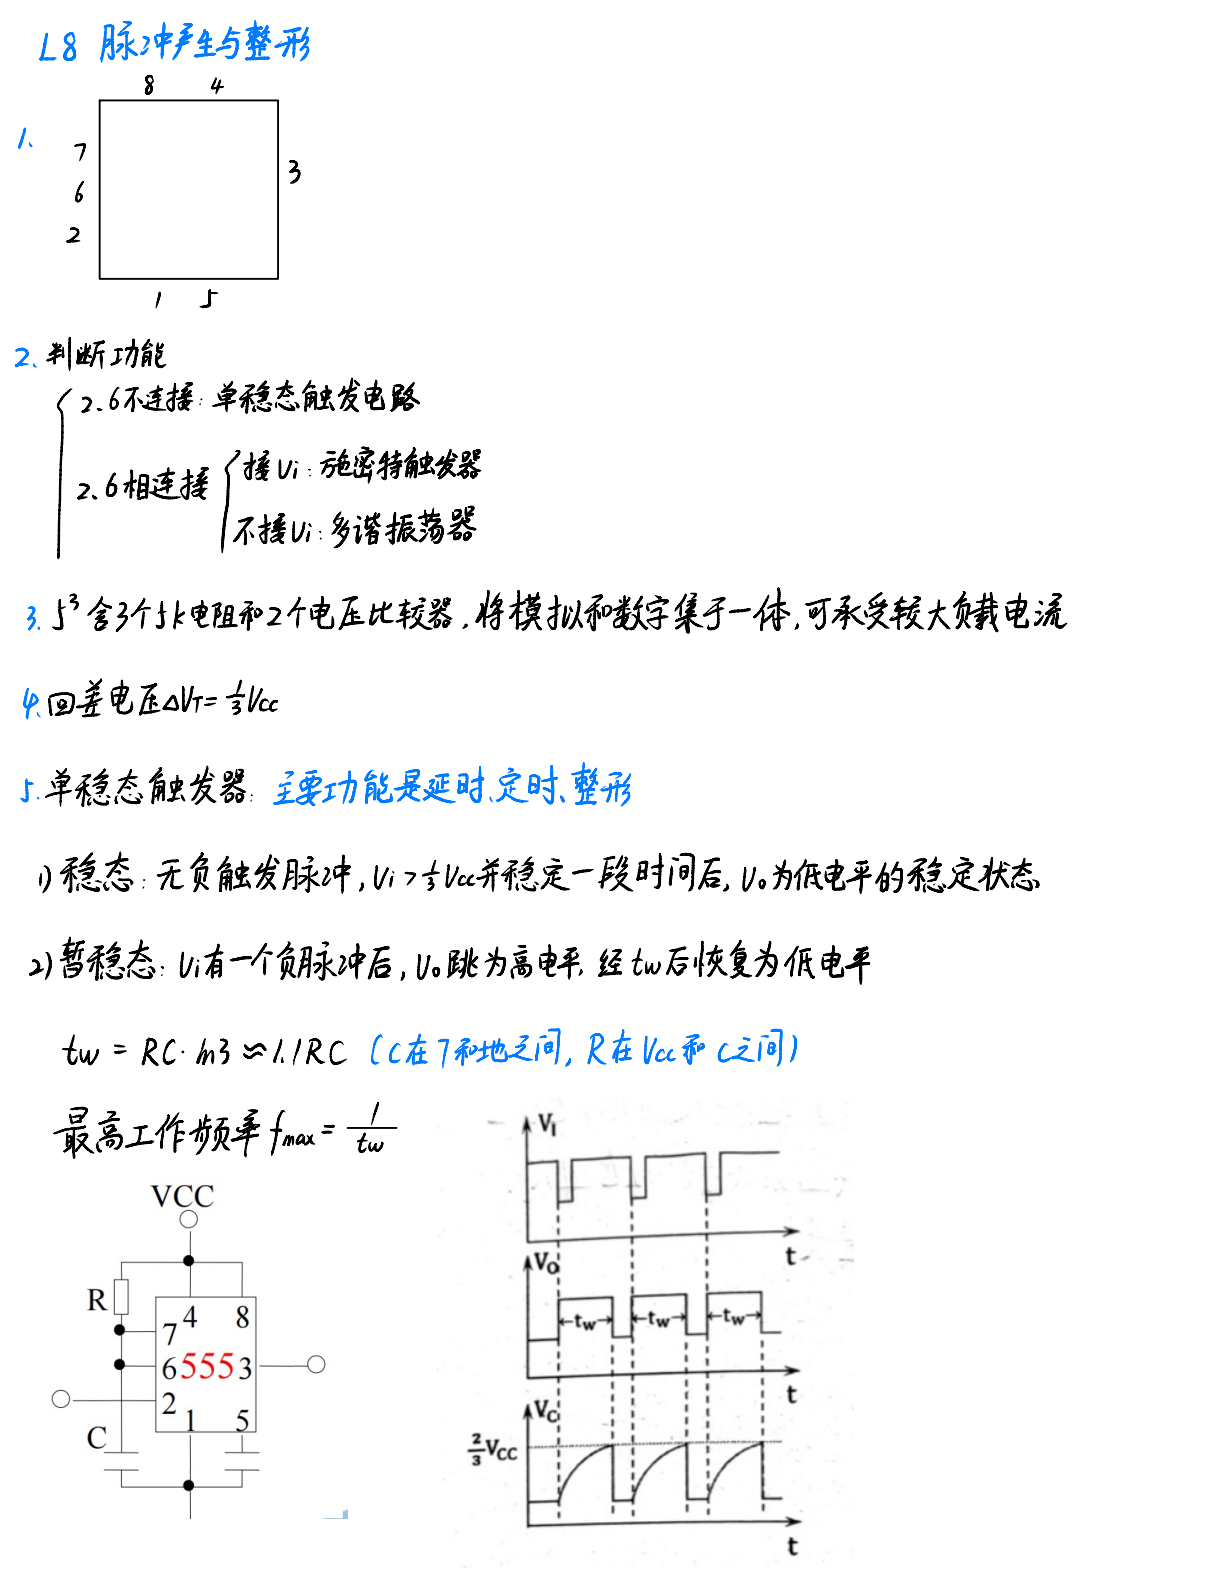 L8 脉冲产生与整形
8 4
1、
7
3
6
2
1 5
2、判断功能
2、6不连接：单稳态触发电路
2、6相连接
接Ui：施密特触发器
不接Ui：多谐振荡器
3. 5³含3个5k电阻和2个电压比较器，将模拟和数字集于一体，可承受较大负载电流
4、回差电压△VT=⅓Vcc
5.单稳态触发器：主要功能是延时、定时、整形
1)稳态：无负触发脉冲，Ui>⅓Vcc并稳定一段时间后，Uo为低电平的稳定状态
2)暂稳态：Ui有一个负脉冲后，Uo跳为高电平，经tw后恢复为低电平
tw = RC·ln3≈1.1RC（C在7和地之间，R在Vcc和C之间）
最高工作频率fmax=1/tw
VCC
R
4 8
7
6 555 3
2
1 5
C
VI
t
VO
tw tw tw
t
VC
2/3 VCC
t